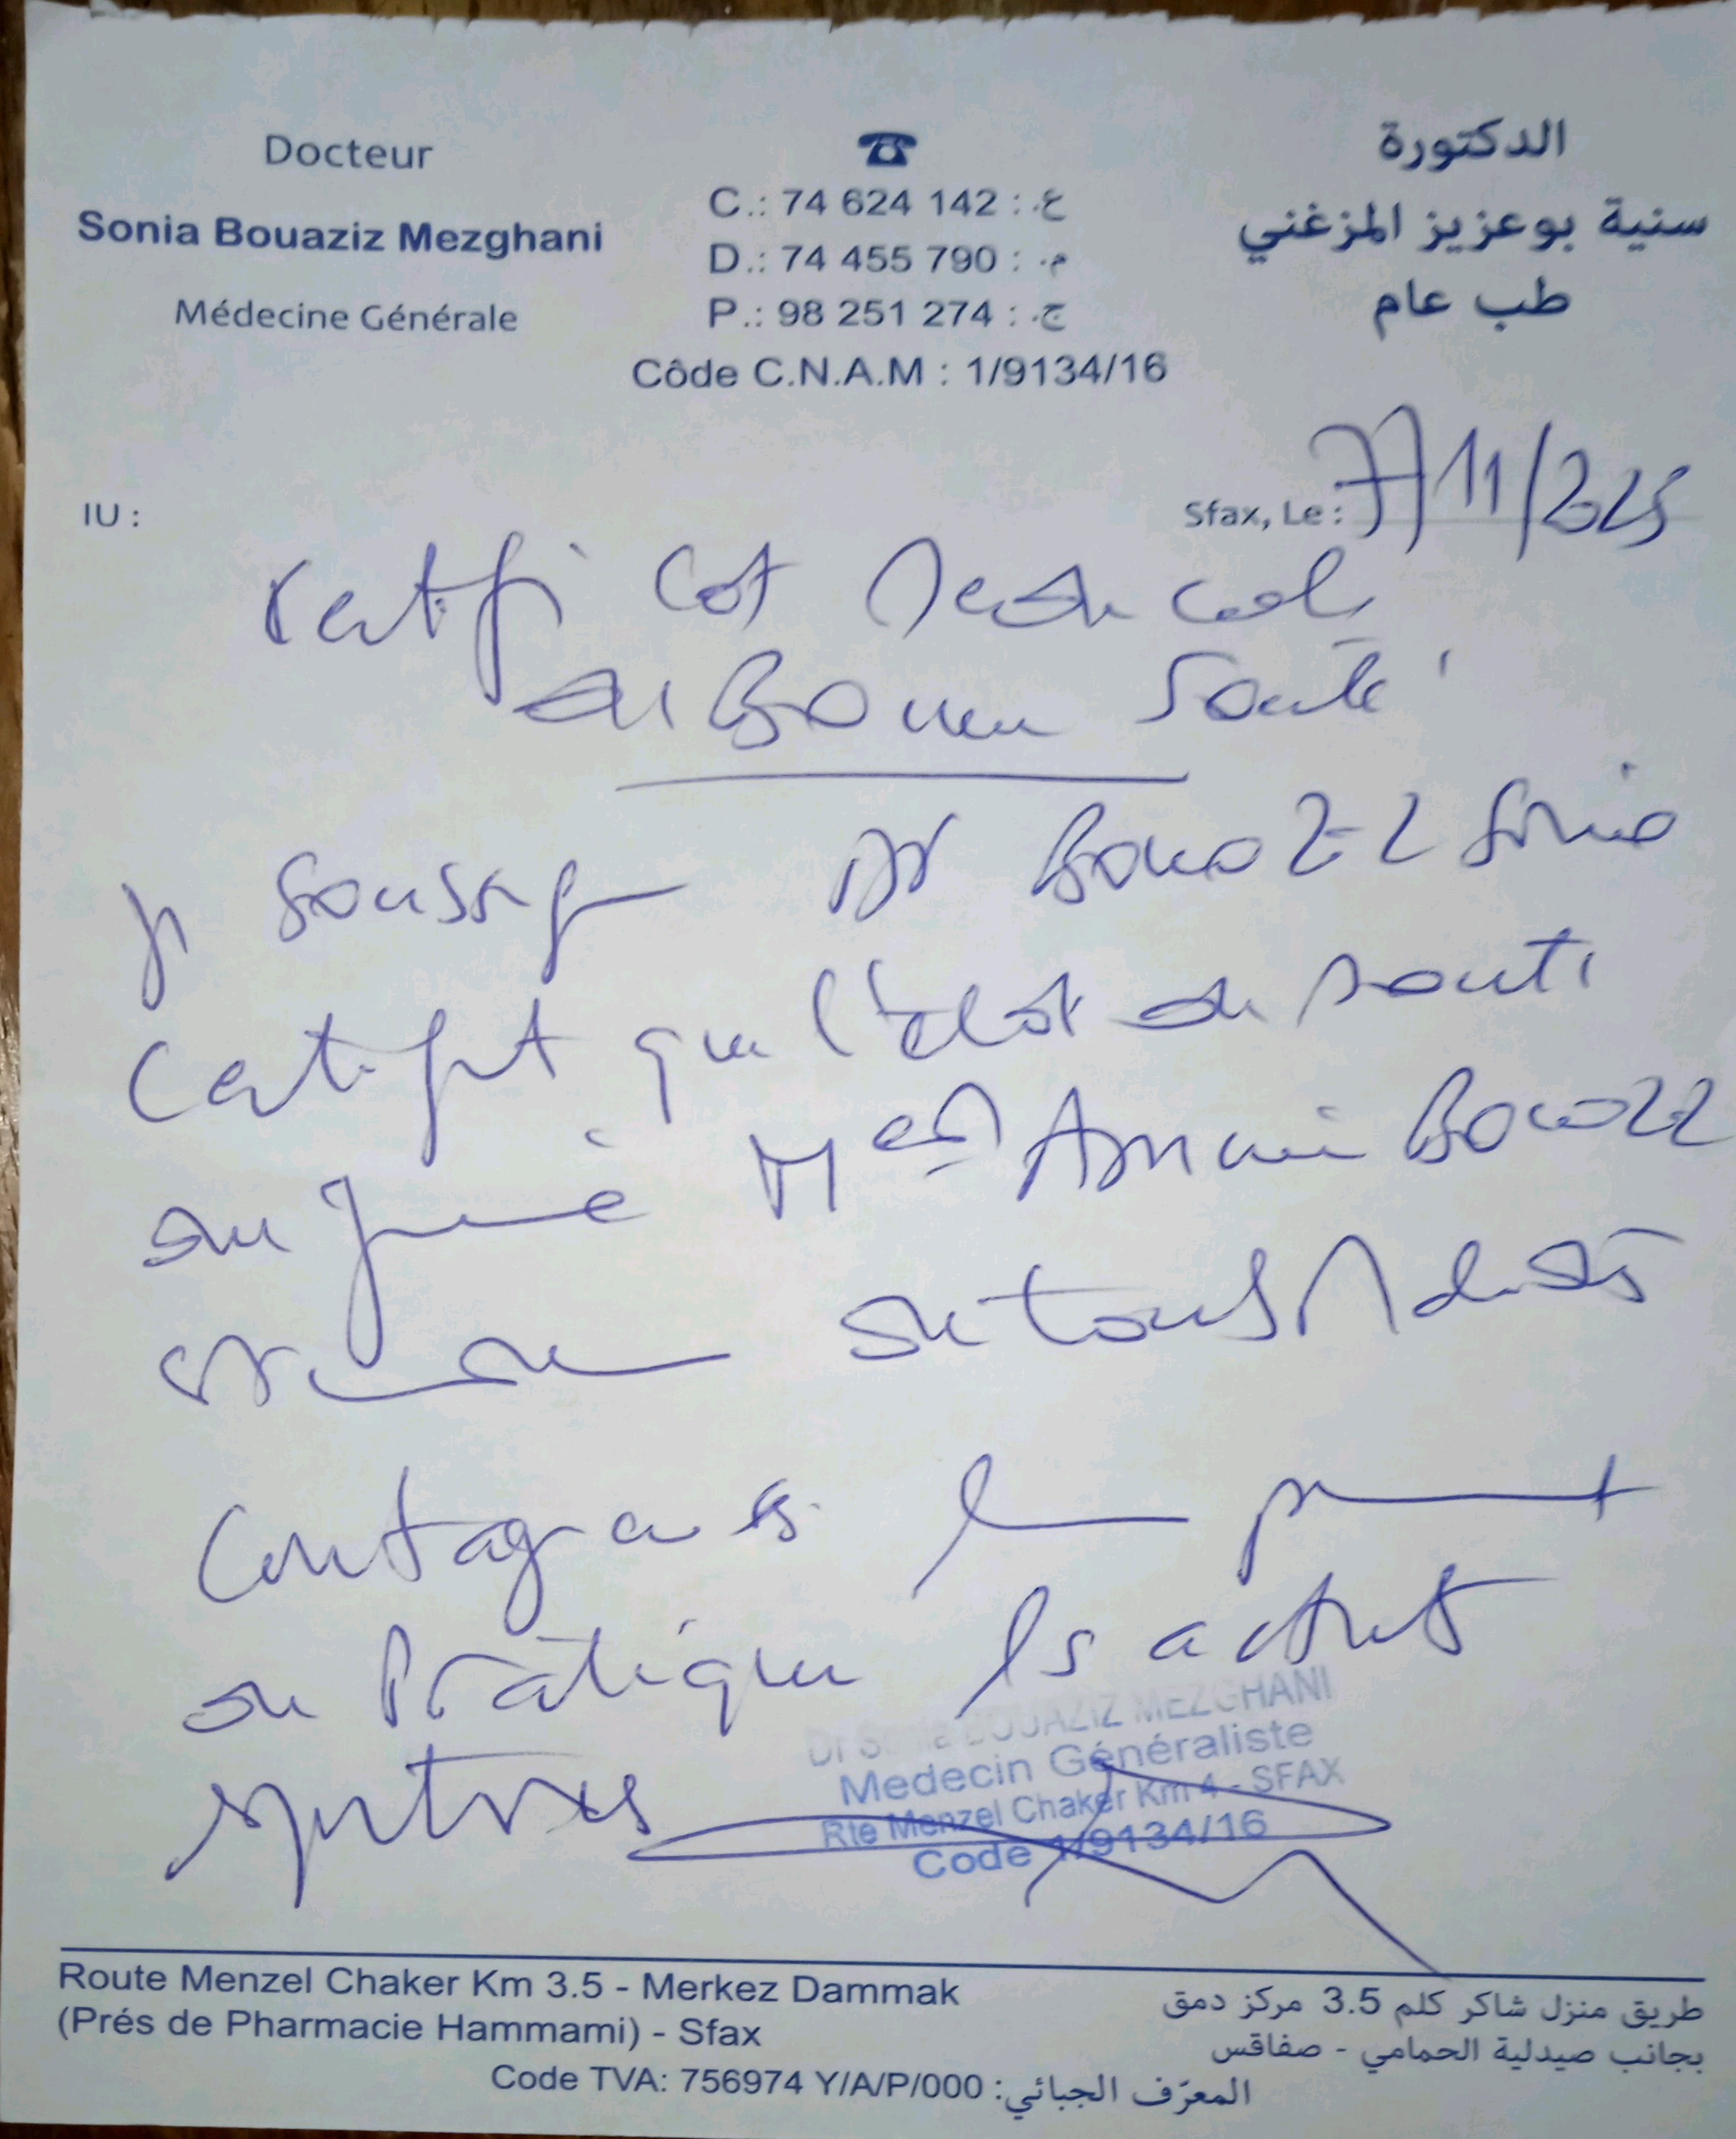 Docteur
Sonia Bouaziz Mezghani
Médecine Générale
☎
C.: 74 624 142 : ع.
D.: 74 455 790 : م.
P.: 98 251 274 : ج.
Côde C.N.A.M : 1/9134/16
الدكتورة
سنية بوعزيز المزغني
طب عام
IU :
Sfax, Le : 7/11/2025
Certificat Medical
de Bonne Santé
Je soussigne Dr Bouaziz Sonia
Certifit que l'état de santé
de Amani Bouaziz
de tous
Contagieuses permet
de Pratiquer les activités
sportives
Dr Sonia BOUAZIZ MEZGHANI
Medecin Généraliste
Rte Menzel Chaker Km 4 - SFAX
Code 1/9134/16
Route Menzel Chaker Km 3.5 - Merkez Dammak
(Prés de Pharmacie Hammami) - Sfax
طريق منزل شاكر كلم 3.5 مركز دمق
بجانب صيدلية الحمامي - صفاقس
Code TVA: 756974 Y/A/P/000 :المعرّف الجبائي